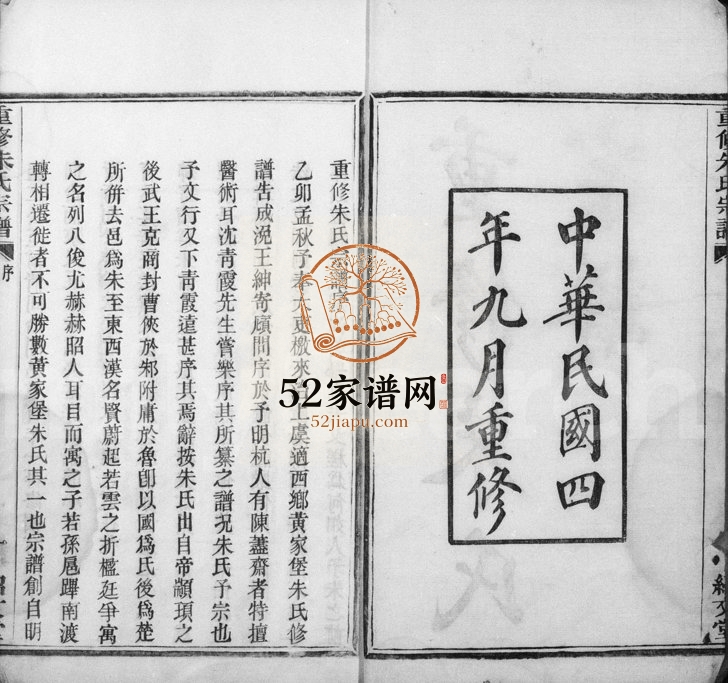 中華民國四
年九月重修
重修朱氏宗譜序
乙卯孟秋予奉大吏檄來上虞適西鄉黃家堡朱氏修
譜告成況王紳寄廎問序於予明杭人有陳藎齋者特擅
醫術耳沈青霞先生嘗樂序其所纂之譜況朱氏予宗也
予文行又下青霞遠甚序其焉辭按朱氏出自帝顓頊之
後武王克商封曹俠於邾附庸於魯卽以國爲氏後爲楚
所併去邑爲朱至東西漢名賢蔚起若雲之折檻廷爭寓
之名列八俊尤赫赫昭人耳目而寓之子若孫扈蹕南渡
轉相遷徙者不可勝數黃家堡朱氏其一也宗譜創自明
重修朱氏宗譜
序
52家谱网
52jiapu.com